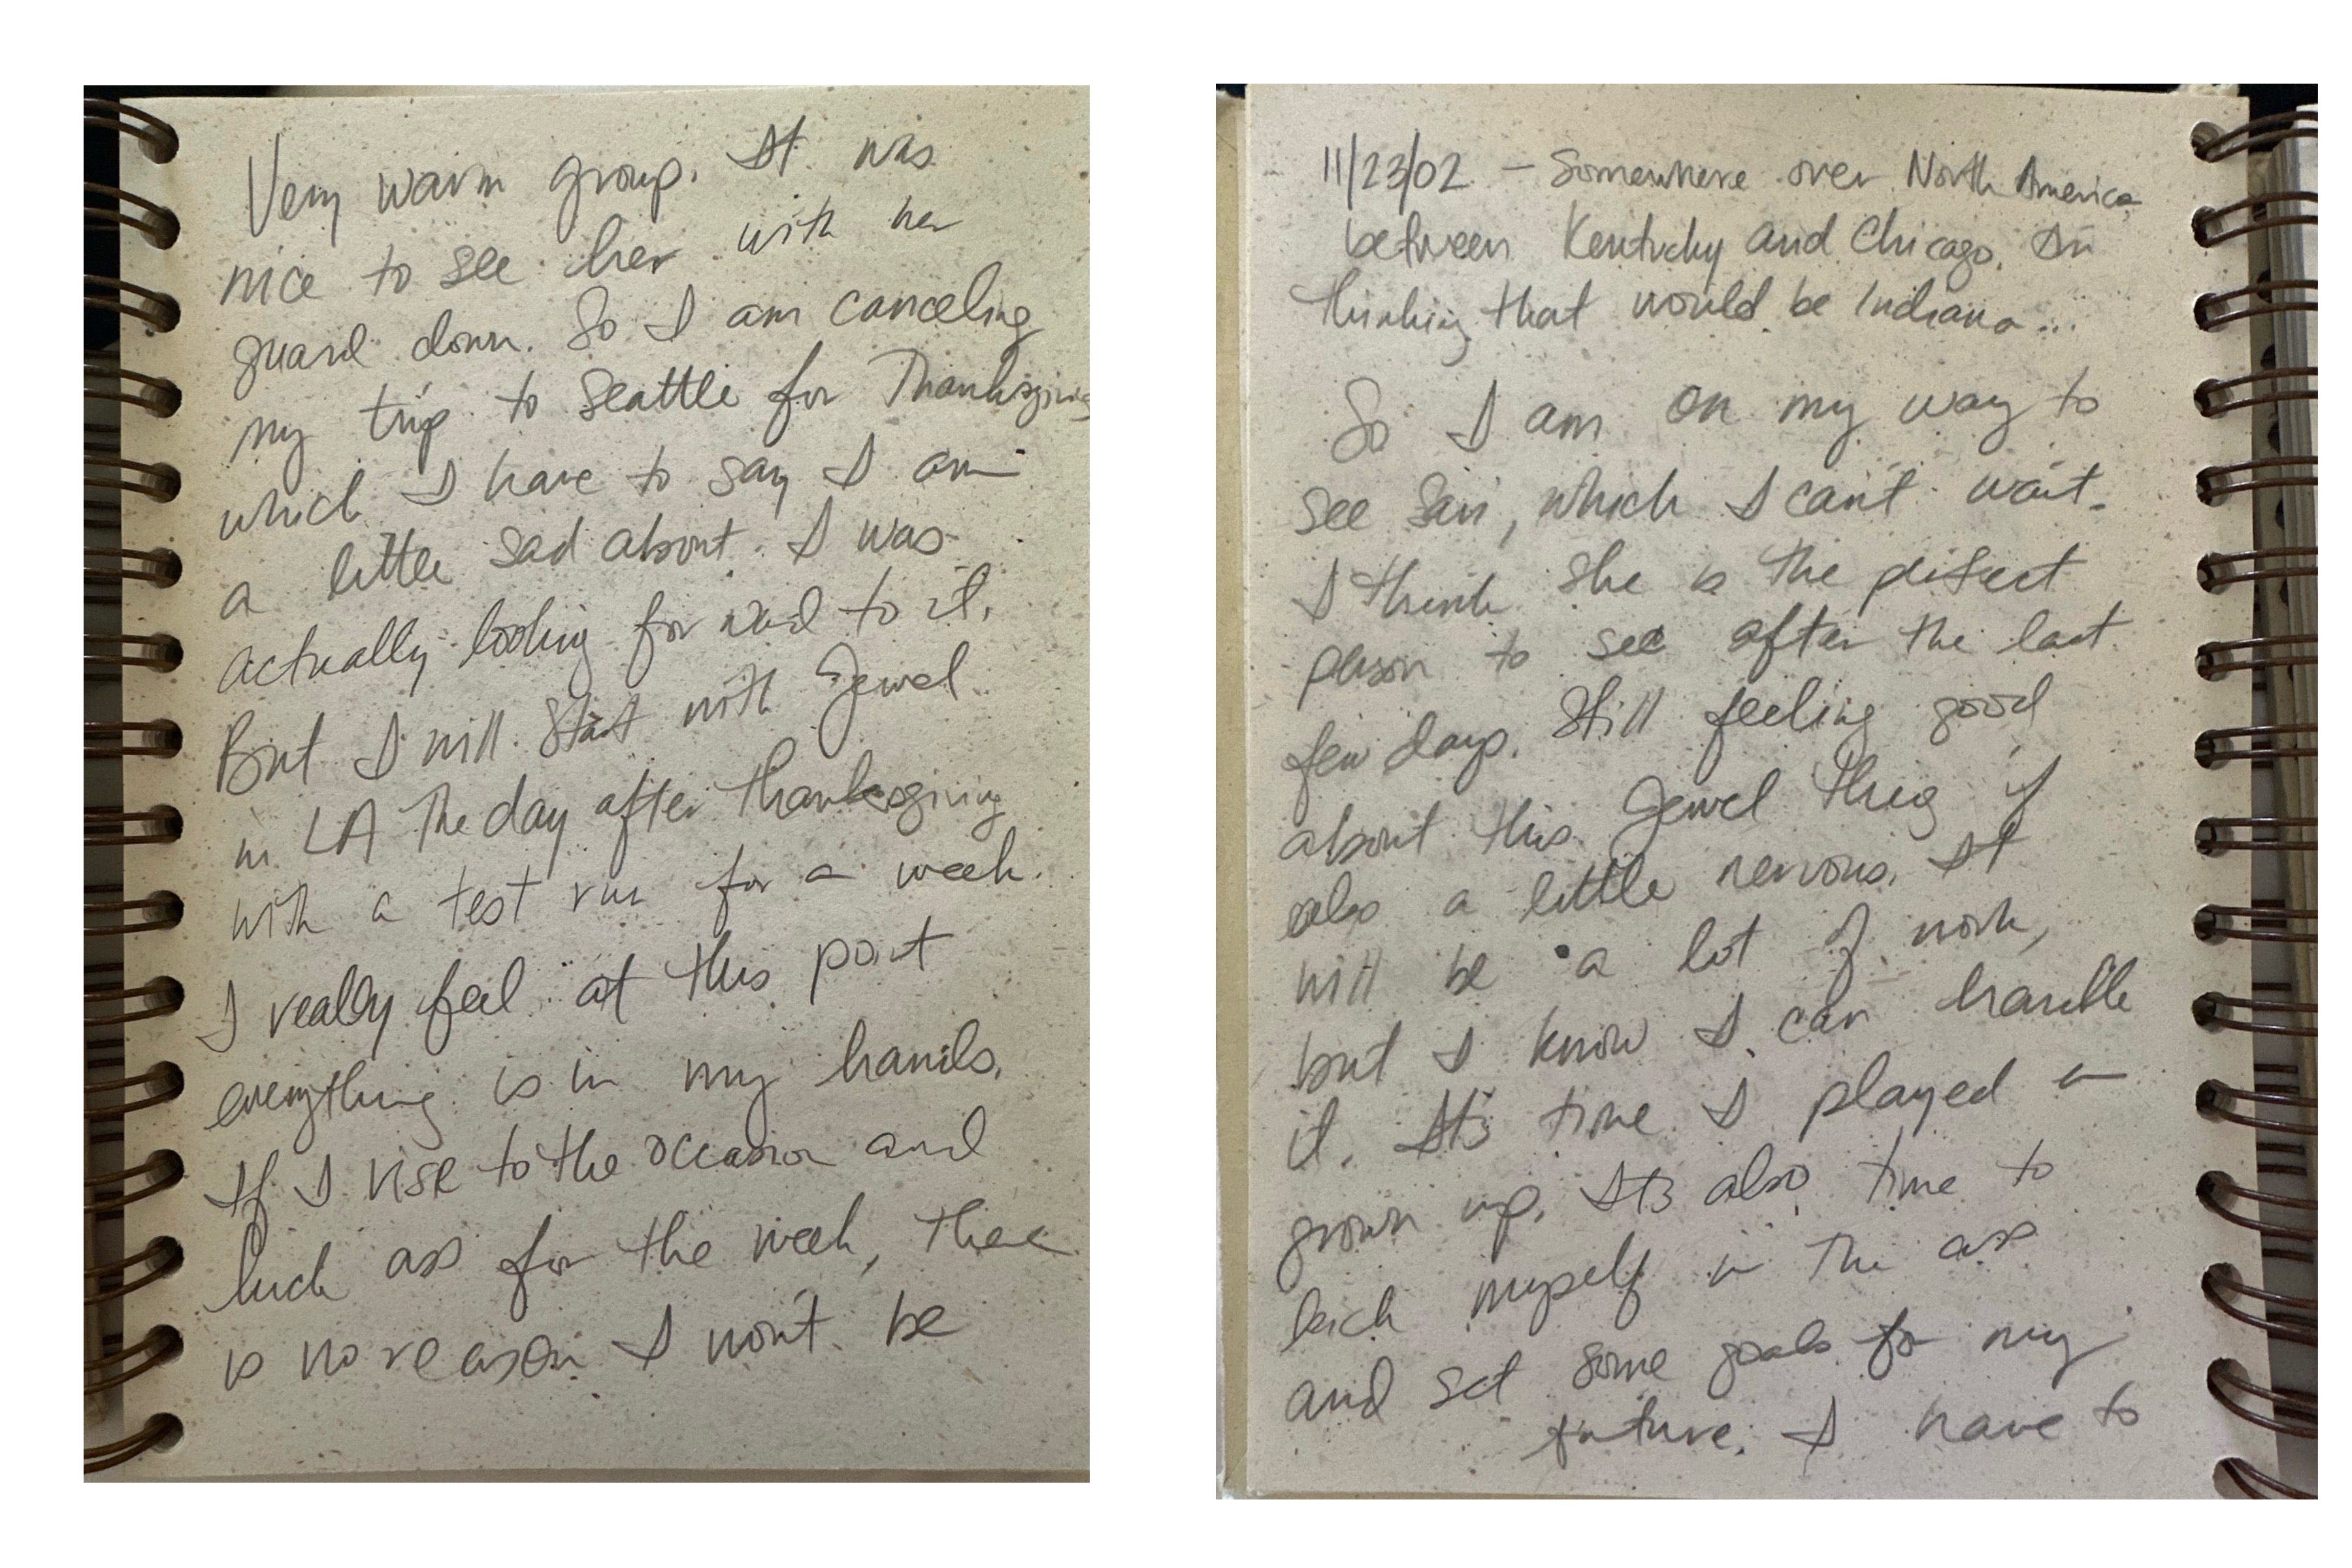 Very warm group. It was
nice to see her with her
guard down. So I am canceling
my trip to Seattle for Thanksgiving
which I have to say I am
a little sad about. I was
actually looking forward to it.
But I will start with Jewel
in LA the day after thanksgiving
with a test run for a week.
I really feel at this point
everything is in my hands.
If I rise to the occasion and
kick ass for the week, there
is no reason I won't be
11/23/02 - Somewhere over North America
between Kentucky and Chicago. I'm
thinking that would be Indiana...
So I am on my way to
see Sari, which I can't wait.
I think she is the perfect
person to see after the last
few days. Still feeling good
about this Jewel thing if
also a little nervous. It
will be a lot of work,
but I know I can handle
it. It's time I played a
grown up. It's also time to
kick myself in the ass
and set some goals for my
future. I have to